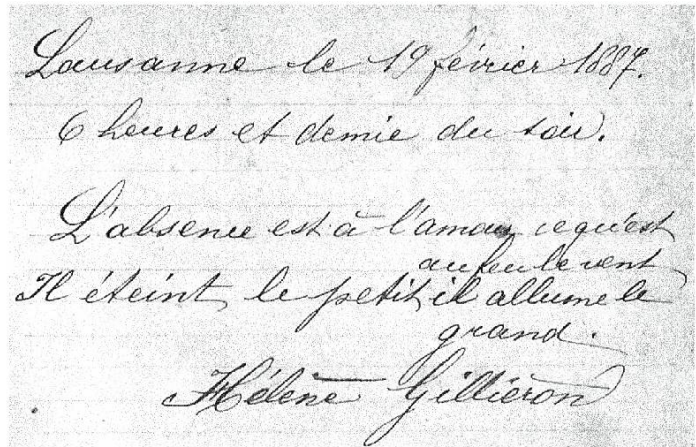 Lausanne le 19 février 1887.
6 heures et demie du soir.
L'absence est à l'amour ce qu'est
au feu le vent
Il éteint le petit, il allume le
grand.
Hélène Gilliéron